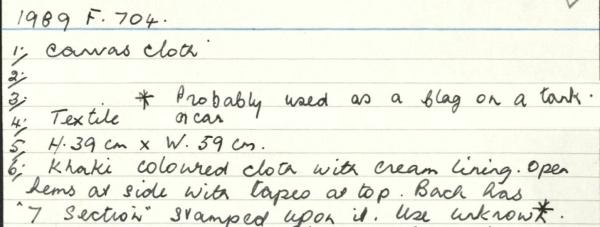 1989 F. 704.
1; Canvas cloth
2;
3; * Probably used as a flag on a tank.
4; Textile or car
5, H. 39 cm x W. 59 cm.
6; Khaki coloured cloth with cream lining. Open
hems at side with tapes at top. Back has
"7 Section" stamped upon it. Use unknown*.